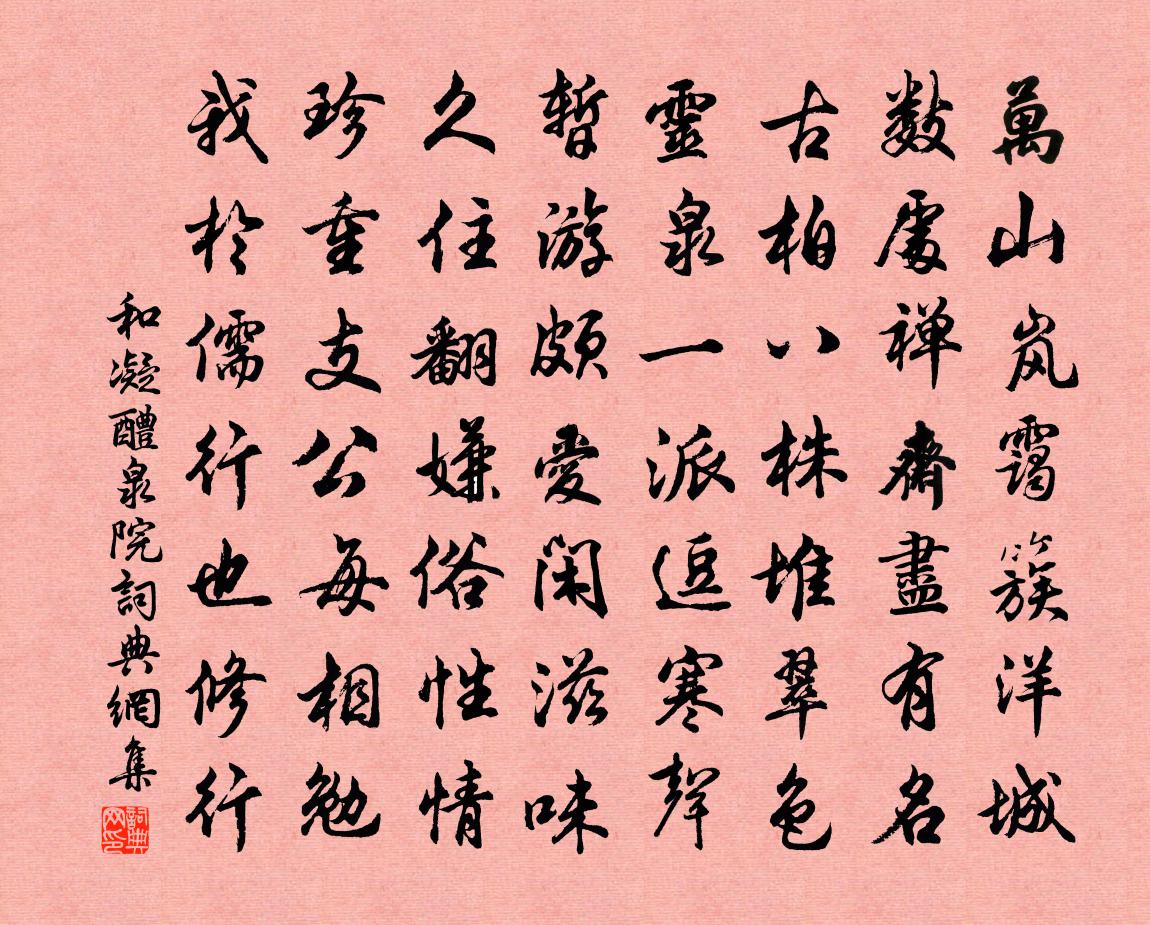 萬山岚靄簇洋城
數處禅齋盡有名
古柏八株堆翠色
靈泉一派逗寒聲
暫游頗愛閑滋味
久住翻嫌俗性情
珍重支公每相勉
我於儒行也修行
和凝醴泉院詞典網集
詞典网印